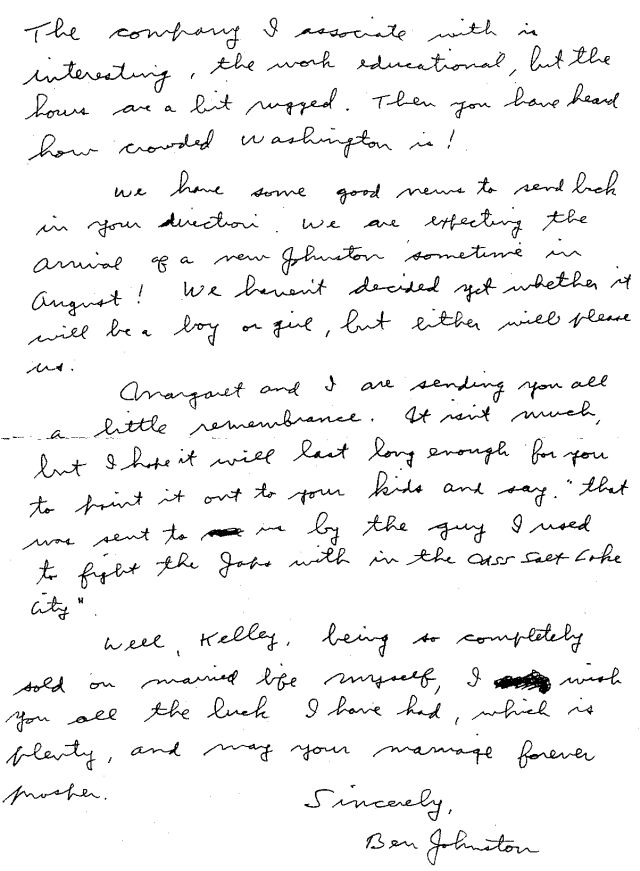 The company I associate with is
interesting, the work educational, but the
hours are a bit rugged. Then you have heard
how crowded Washington is!
We have some good news to send back
in your direction. We are expecting the
arrival of a new Johnston sometime in
August! We haven't decided yet whether it
will be a boy or girl, but either will please
us.
Margaret and I are sending you all
a little remembrance. It isn't much,
but I hope it will last long enough for you
to point it out to your kids and say. "that
was sent to us by the guy I used
to fight the Japs with in the USS Salt Lake
City".
Well, Kelley, being so completely
sold on married life myself, I wish
you all the luck I have had, which is
plenty, and may your marriage forever
prosper.
Sincerely,
Ben Johnston